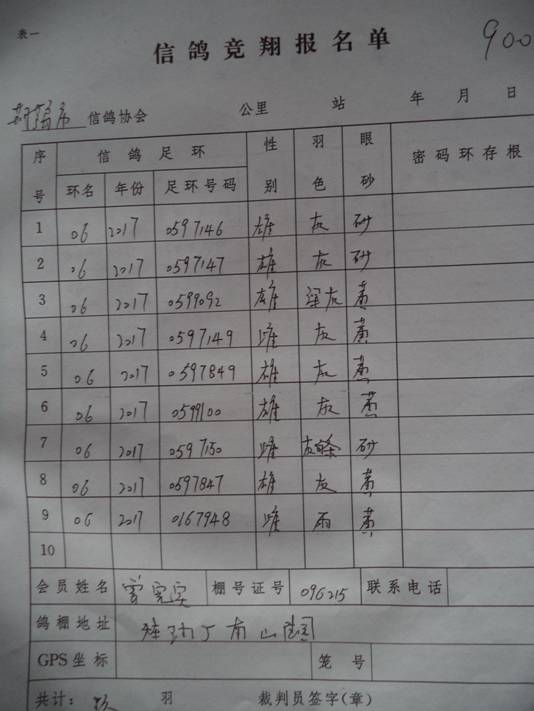 表一
信鸽竞翔报名单
900
信鸽协会 公里 站 年 月 日
序号 信鸽足环 性别 羽色 眼砂 密码环存根
环名 年份 足环号码
1 06 2017 0597146 雄 灰 砂
2 06 2017 0597147 雄 灰 砂
3 06 2017 0599092 雄 灰 黄
4 06 2017 0597149 雌 灰 黄
5 06 2017 0597849 雄 灰 黄
6 06 2017 0599100 雄 灰 黄
7 06 2017 0597150 雌 砂
8 06 2017 0597847 雄 灰 黄
9 06 2017 0167948 雌 雨 黄
10
会员姓名 曾宪实 棚号证号 096215 联系电话
鸽棚地址 南山
GPS坐标 笼号
共计: 羽 裁判员签字(章)